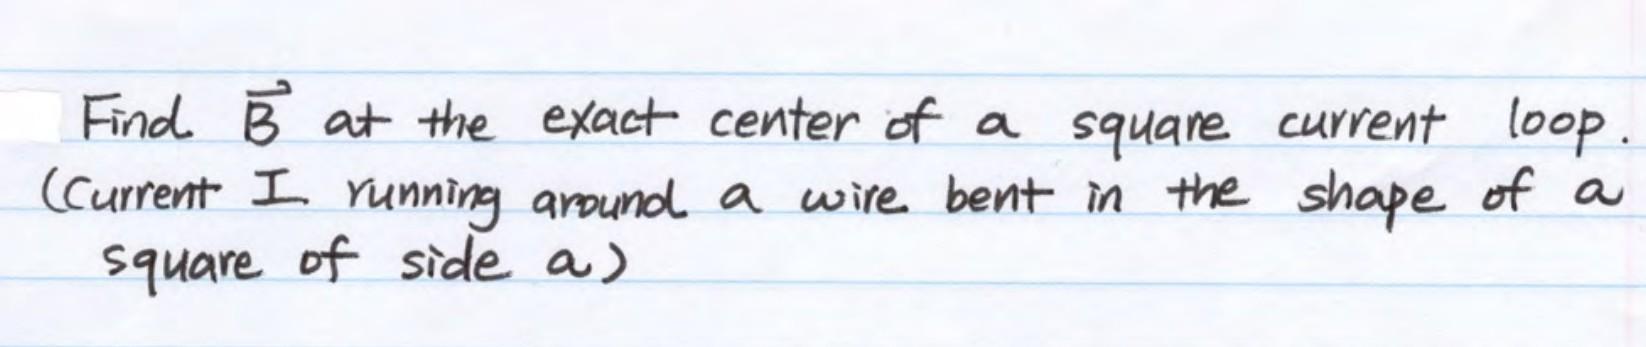 Find B⃗ at the exact center of a square current loop.
(Current I running around a wire bent in the shape of a
square of side a)